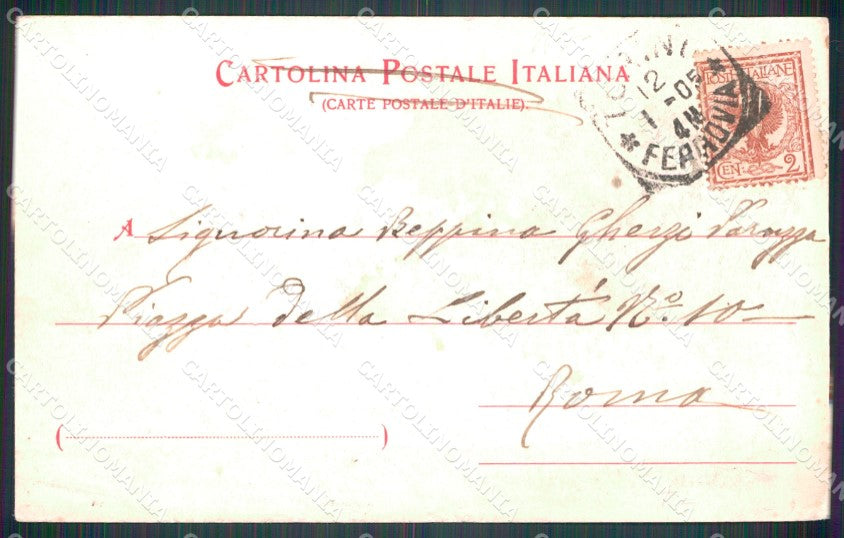 CARTOLINA POSTALE ITALIANA
(CARTE POSTALE D'ITALIE).
TORINO
12
1 - 05
4M
* FERROVIA *
POSTE ITALIANE
CEN. 2
A Signorina Beppina Gherzi
Piazza della Libertá No. 10
Roma
( )
CARTOLINOMANIA